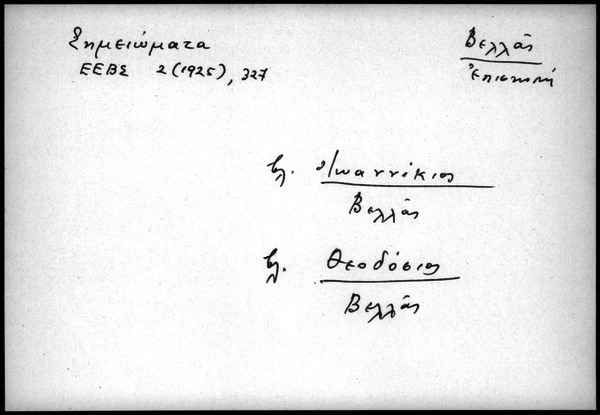 Σημειώματα
ΕΕΒΣ 2 (1925), 327
Βελλᾶς
Ἐπισκοπή
βλ. Ἰωαννίκιος
Βελλᾶς
βλ. Θεοδόσιος
Βελλᾶς